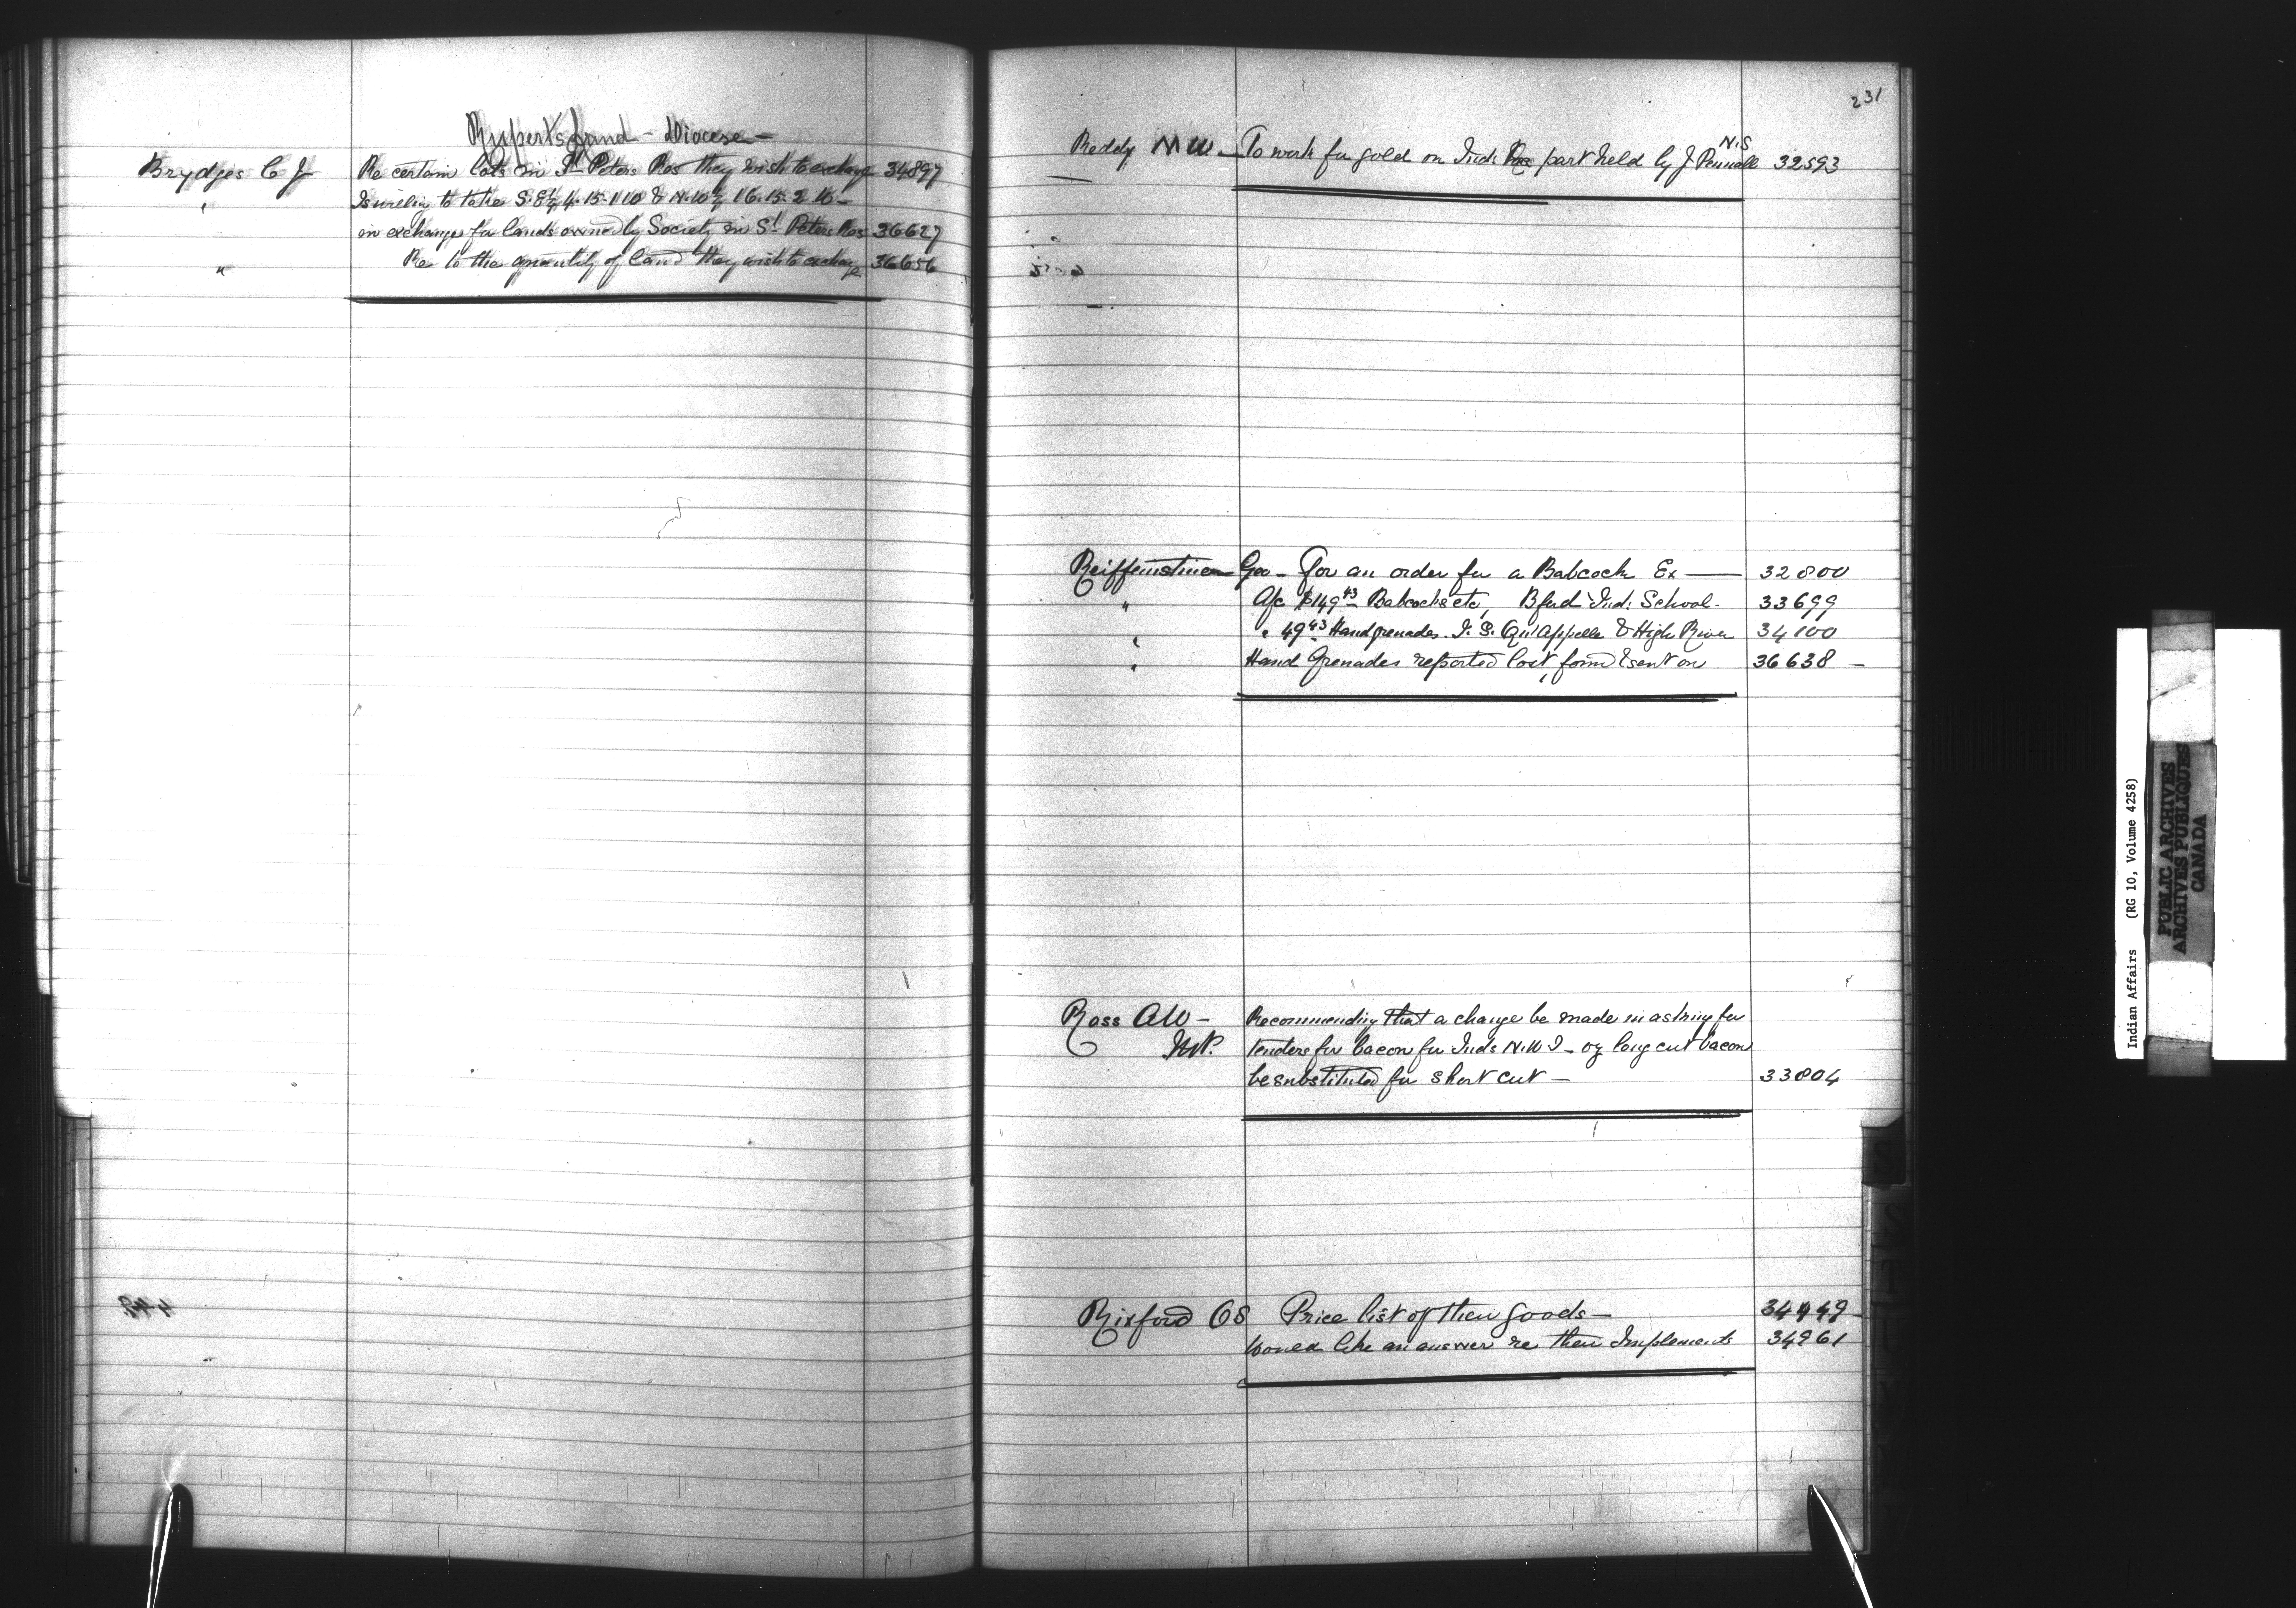 Rupert's Land - Diocese -
Brydges C J Re certain lots in St Peters Res they wish to exchange 34897
" Is willing to take S. E 1/4 4-15-1 &
in exchange for lands owned by Society in St Peters Res 36627
" Re to the quantity of land they wish to exchange 36656
231
N.S
Reddy M W - To work for gold on Ind: Res part held by J 32593
Reiffenstine Geo - for an order for a Babcock Ex — 32800
" A/c $149 43 Babcocks etc, Bford Ind: School - 33699
" " 49 43 Hand grenades I. S. Qu'Appelle & High River 34100
" Hand Grenades reported lost, found & sent on 36638 -
Ross A W - Recommending that a change be made in asking for
M.P. tenders for bacon for Inds N.W.T - long cut bacon
be substituted for short cut - 33804
Rixford O S Price list of their goods - 34449
Would like an answer re their Implements 34961
Indian Affairs (RG 10, Volume 4258)
PUBLIC ARCHIVES
ARCHIVES PUBLIQUES
CANADA